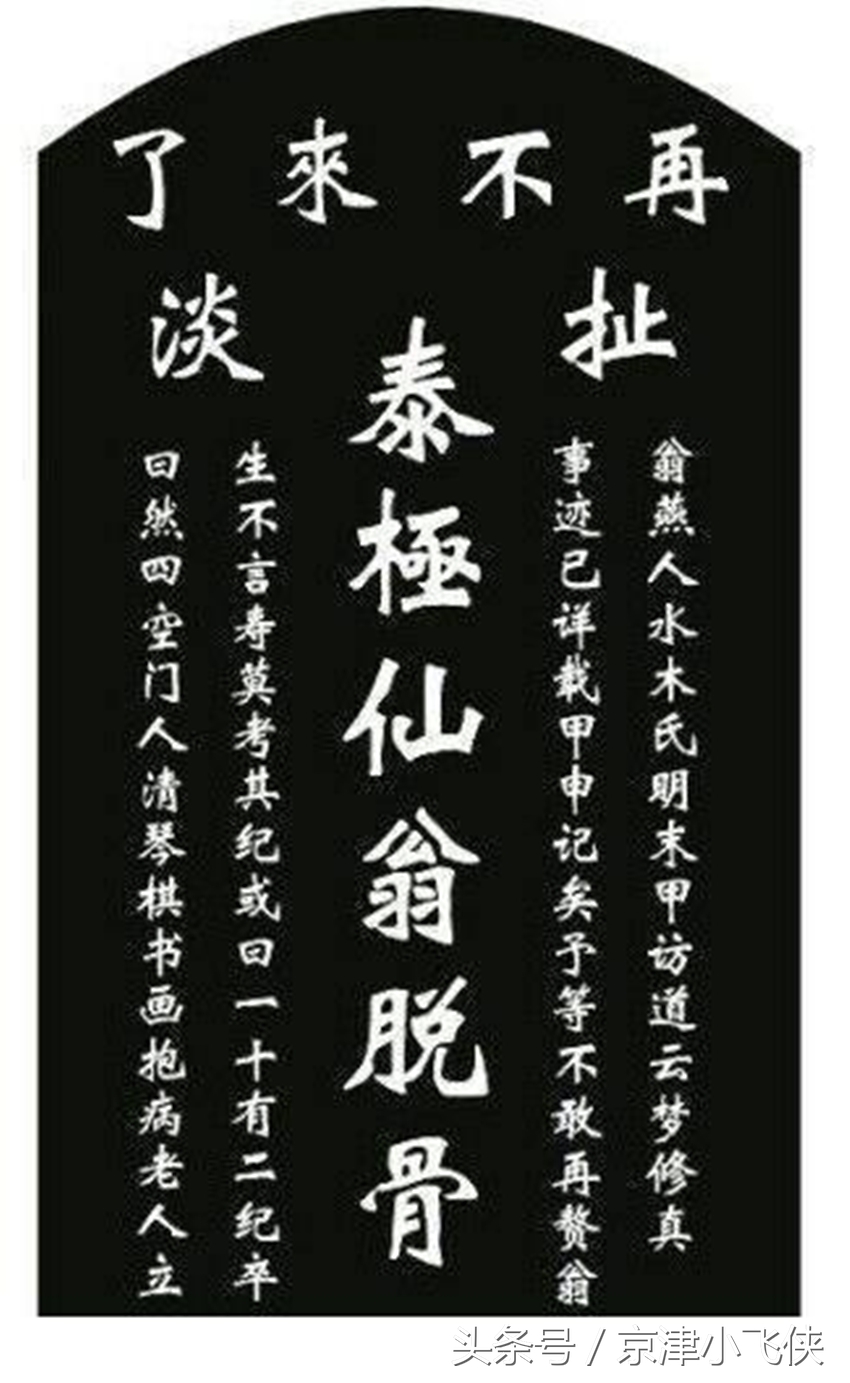 再不來了
扯淡
翁燕人水木氏明末甲访道云梦修真
事迹已详载甲申记矣予等不敢再赘翁
泰極仙翁脱骨
生不言寿莫考其纪或曰一十有二纪卒
曰然四空门人清琴棋书画抱病老人立
头条号 / 京津小飞侠